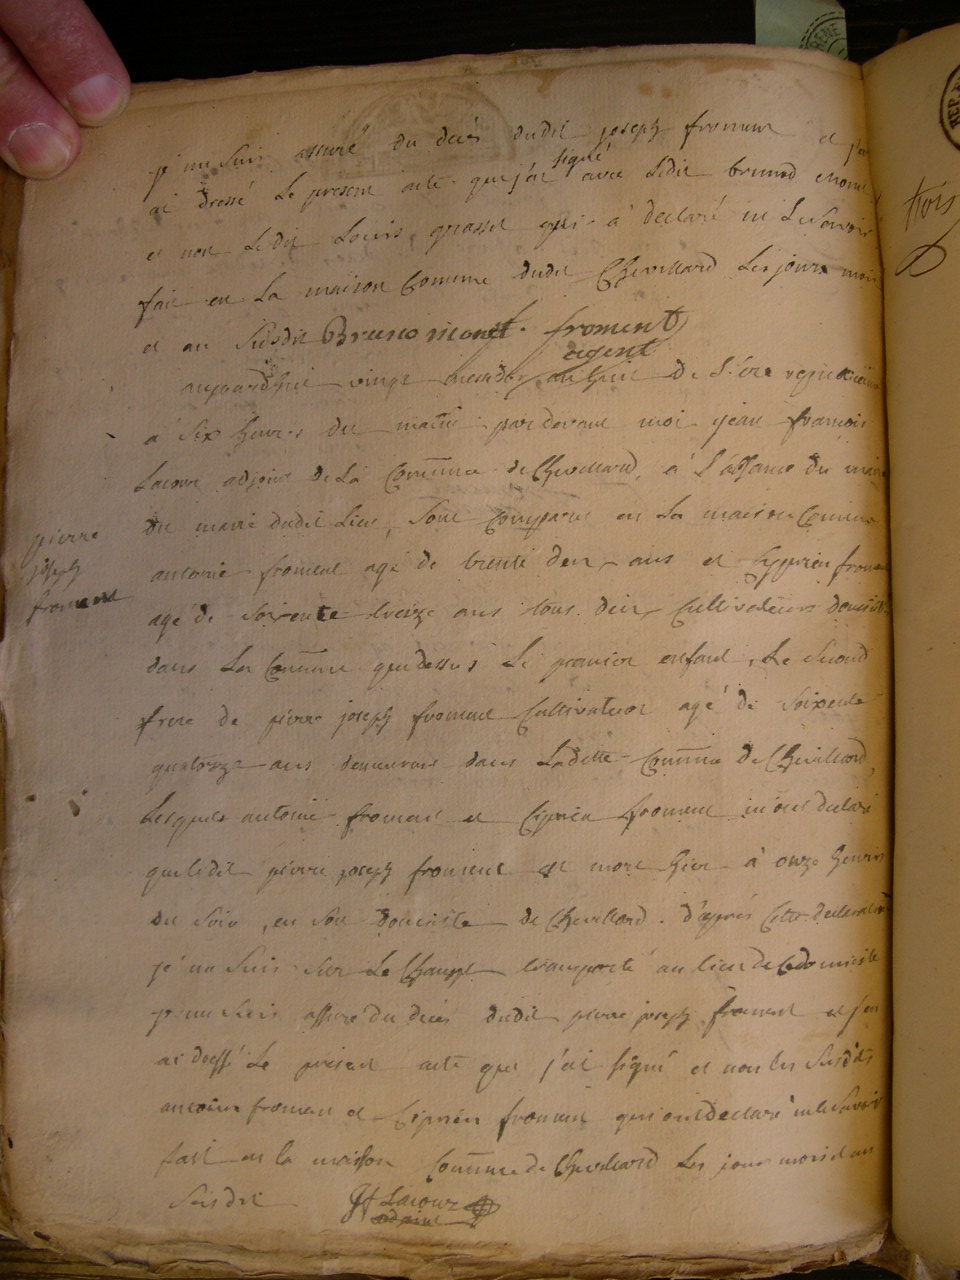 je me suis assuré du deces dudit joseph froment et j'en
ai dressé le present acte que j'ai signé avec ledit bruno monet
et non ledit Louis grasset qui a declaré ne le savoir
fait en la maison Commune dudit Chevillard les jour mois
et an susdit Bruno monet froment
agent
aujourd'hui vingt messidor an huit de L'ère republicaine
à six heures du matin par devant moi jean francois
Lacour adjoint de La Commune de Chevillard à L'absence du maire
du maire dudit Lieu, sont comparus en La maison Commune
antoine froment agé de trente deux ans et Cyprien froment
agé de soixente treize ans tous deux Cultivateurs
dans La Commune que dessus Le premier enfant, Le second
frere de pierre joseph froment Cultivateur agé de soixente
quatorze ans demeurant dans Ladette Commune de Chevillard,
Lesquels antoine froment et Ciprien froment m'ont declaré
que ledit pierre joseph froment est mort hier à onze heures
du soir, en son domicile de Chevillard. d'après cette declaration
je me suis sur Le Champt transporté au lieu de ce domicile
je me suis assuré du deces dudit pierre joseph froment et j'en
ai dressé Le present acte que j'ai signé et non les susdits
antoine froment et Ciprien froment qui ont declaré ne le savoir
fait en la maison Commune de Chevillard les jour mois et an
susdit JF Lacour
adjoint
pierre
joseph
froment
trois